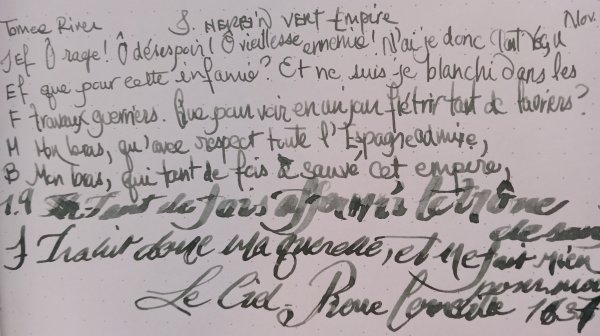 Tomoe River J. HERBIN VERT Empire Nov.
JEF Ô rage! Ô désespoir! Ô vieillesse ennemie! N'ai je donc tant vécu
EF que pour cette infamie? Et ne suis-je blanchi dans les
F travaux guerriers. Que pour voir en un jour flétrir tant de lauriers?
M Mon bras, qu'avec respect toute l'Espagne admire,
B Mon bras, qui tant de fois a sauvé cet empire,
1.9 Tant de fois affermi le trône
de son
J Trahit donc ma querelle, et ne fait rien
pour moi
Le Cid, Pierre Corneille 1637